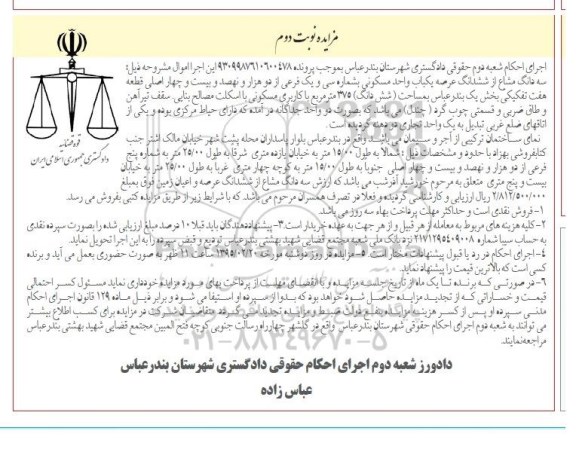 مزایده نوبت دوم
قوه قضائیه
دادگستری جمهوری اسلامی ایران
اجرای احکام شعبه دوم حقوقی دادگستری شهرستان بندرعباس بموجب پرونده ۹۳۰۹۹۸۷۶۱۰۶۰۰۴۷۸ این اجرا اموال مشروحه ذیل:
سه دانگ مشاع از ششدانگ عرصه یکباب واحد مسکونی بشماره سی و یک فرعی از دو هزار و نهصد و بیست و چهار اصلی قطعه
هفت تفکیکی بخش یک بندرعباس بمساحت (شش دانگ) ۳۷۵ مترمربع با کاربری مسکونی با اسکلت مصالح بنایی سقف تیرآهن
و طاق ضربی و قسمتی چوب گرد (چندل) می باشد که بصورت دو واحد جداگانه در آمده که دارای حیاط مرکزی بوده و یکی از
اتاقهای ضلع غربی تبدیل به یک واحد تجاری دو دهنه گردیده است.
نمای ساختمان ترکیبی از آجر و سیمان می باشد واقع در بندرعباس بلوار پاسداران محله پشت شهر خیابان مالک اشتر جنب
کتابفروشی بهزاد با حدود و مشخصات ذیل: شمالا به طول ۱۵/۰۰ متر به خیابان یازده متری شرقا به طول ۲۵/۰۰ متر به شماره پنج
فرعی از دو هزار و نهصد و بیست و چهار اصلی جنوبا به طول ۱۵/۰۰ متر به کوچه چهار متری غربا به طول ۲۵/۰۰ متر به خیابان
بیست و پنج متری متعلق به مرحوم خورشید آفرشب می باشد که ارزش سه دانگ مشاع از ششدانگ عرصه و اعیان زمین فوق بمبلغ
۲/۸۱۲/۵۰۰/۰۰۰ ریال ارزیابی و کارشناسی گردیده و فعلا در تصرف همسران مرحوم می باشد که با شرایط زیر از طریق مزایده کتبی بفروش می رسد.
۱- فروش نقدی است و حداکثر مهلت پرداخت بهاء سه روز می باشد.
۲- کلیه هزینه های مربوط به معامله از هر قبیل و از هر جهت به عهده خریدار است. ۳- پیشنهاد دهندگان باید قبلا ۱۰ درصد مبلغ ارزیابی شده را بصورت سپرده نقدی
به حساب سیبا شماره ۲۱۷۱۲۹۵۴۰۹۰۰۸ نزد بانک ملی شعبه مجتمع قضایی شهید بهشتی بندرعباس تودیع و قبض سپرده را به این اجرا تحویل نماید.
۴- اجرای احکام در رد یا قبول پیشنهادات مختار است. ۵- مزایده در روز دوشنبه مورخه ۱۳۹۵/۰۷/۲۰ ساعت ۱۱ ظهر به صورت حضوری بعمل می آید و برنده
کسی است که بالاترین قیمت را پیشنهاد نماید.
۶- در صورتی که برنده تا یک ماه از تاریخ جلسه مزایده و با انقضای مهلت از پرداخت بهای مورد مزایده خودداری نماید مسئول کسر احتمالی
قیمت و خساراتی که از تجدید مزایده حاصل شود خواهد بود که بدوا از سپرده او استیفا می شود و برابر ذیل ماده ۱۲۹ قانون اجرای احکام
مدنی سپرده او پس از کسر هزینه مزایده به نفع دولت ضبط و مزایده تجدید می گردد متقاضیان شرکت در مزایده برای کسب اطلاع بیشتر
می توانند به شعبه دوم اجرای احکام حقوقی شهرستان بندرعباس واقع در گلشهر چهارراه رسالت جنوبی کوچه فتح المبین مجتمع قضایی شهید بهشتی بندرعباس
مراجعه نمایند.
۰۲۱-۸۸۳۴۹۶۷۰-۵
دادورز شعبه دوم اجرای احکام حقوقی دادگستری شهرستان بندرعباس
عباس زاده